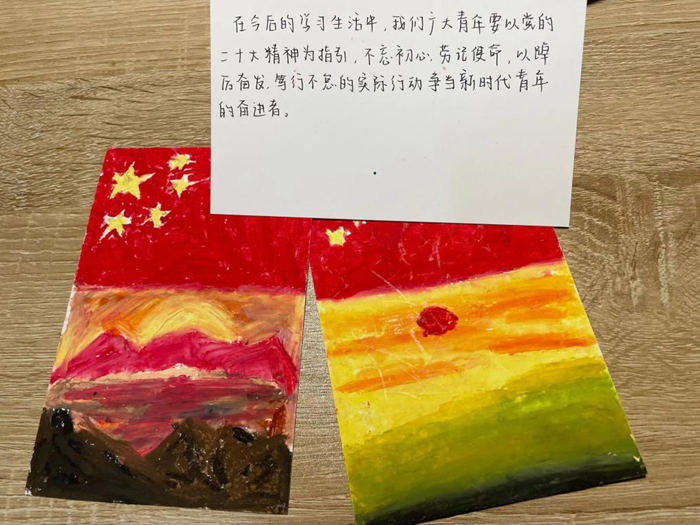 在今后的学习生活中，我们广大青年要以党的
二十大精神为指引，不忘初心，劳记使命，以踔
厉奋发，笃行不怠的实际行动争当新时代青年
的奋进者。